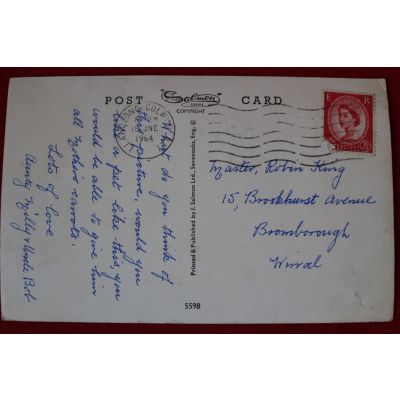 POST "Salmon" CARD
SERIES
COPYRIGHT
COLWYN
JNE
1964
E R
What do you think of
this creature, would you
like a pet like this, you
would be able to give him
all Mothers carrots.
Lots of love
Aunty Milly & Uncle Bob
Printed & Published by J. Salmon Ltd., Sevenoaks, Eng. ©
Master, Robin King
15, Brookhurst Avenue
Bromborough
Wirral
5598